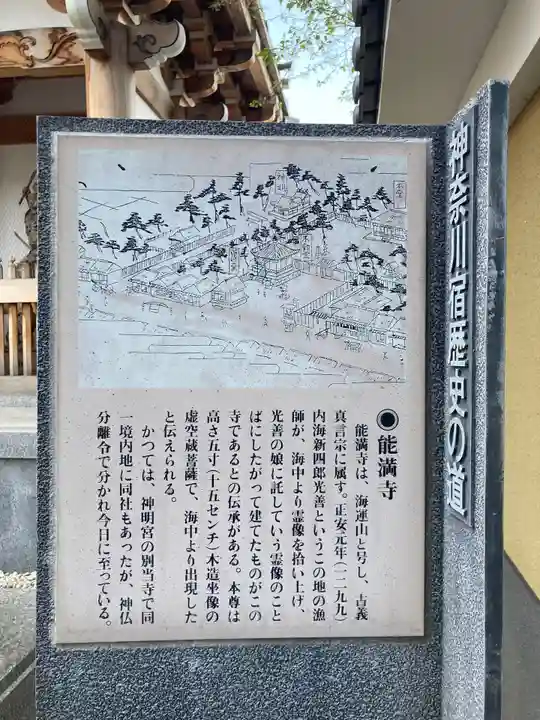 神奈川宿歴史の道
◉能満寺
能満寺は、海運山と号し、古義
真言宗に属す。正安元年(一二九九)
内海新四郎光善というこの地の漁
師が、海中より霊像を拾い上げ、
光善の娘に託していう霊像のこと
ばにしたがって建てたものがこの
寺であるとの伝承がある。本尊は
高さ五寸(十五センチ)木造坐像の
虚空蔵菩薩で、海中より出現した
と伝えられる。
かつては、神明宮の別当寺で同
一境内地に同社もあったが、神仏
分離令で分かれ今日に至っている。